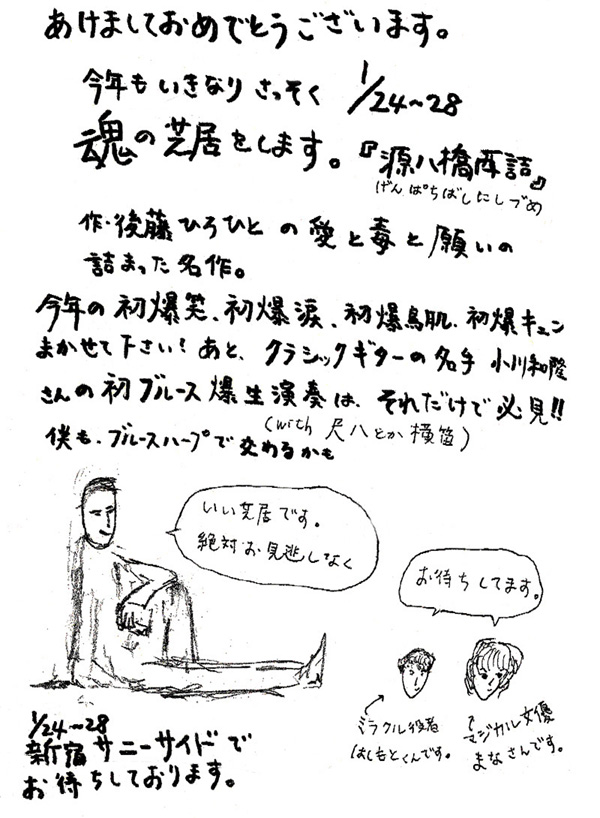 あけましておめでとうございます。
今年もいきなりさっそく 1/24~28
魂の芝居をします。『源八橋西詰』
げんぱちばしにしづめ
作・後藤ひろひとの愛と毒と願いの
詰まった名作。
今年の初爆笑、初爆涙、初爆鳥肌、初爆キュン
まかせて下さい!あと、クラシックギターの名手 小川和隆
さんの初ブルース爆生演奏は、それだけで必見!!
(with 尺八とか横笛)
僕も、ブルースハープで交わるかも
いい芝居です。
絶対お見逃しなく
お待ちしてます。
ミラクル役者
はしもとくんです。
マジカル女優
まなさんです。
1/24~28
新宿サニーサイドで
お待ちしております。